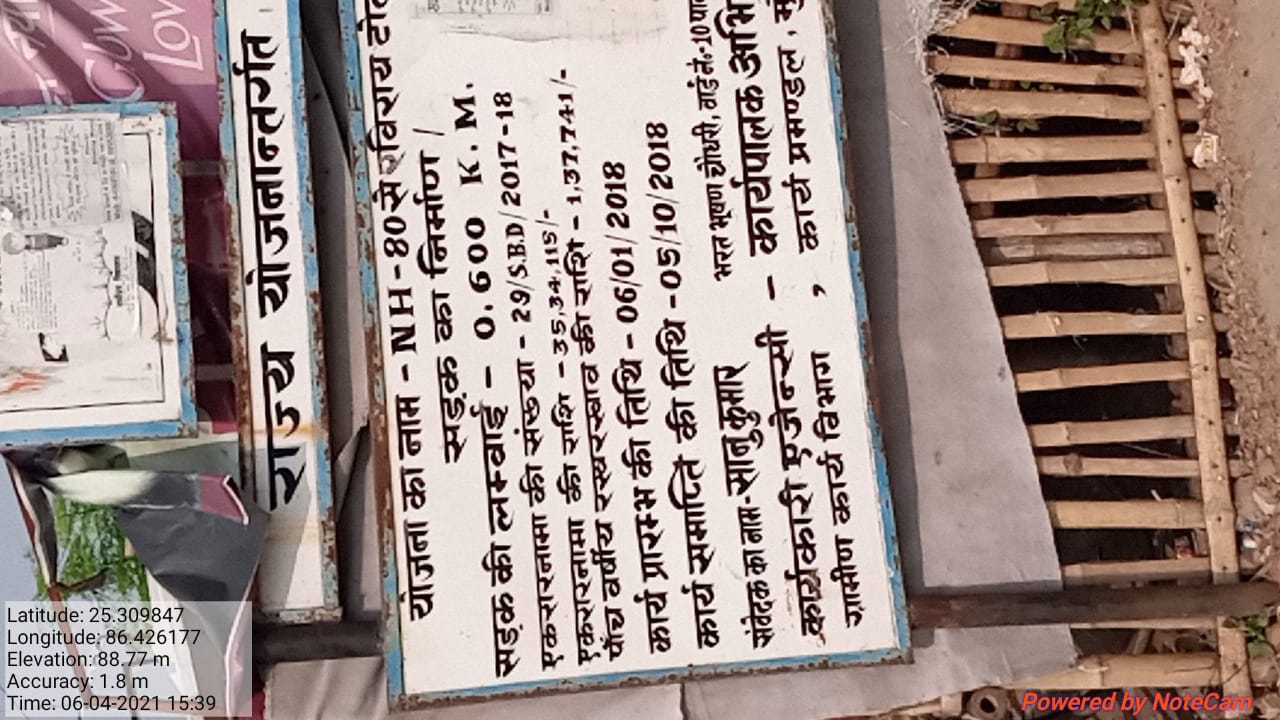 राज्य योजनान्तर्गत
योजना का नाम - NH - 80 से रविराय टोल
सड़क का निर्माण /
सड़क की लम्बाई - 0.600 K.M.
एकरारनामा की संख्या - 29/S.B.D/2017-18
एकरारनामा की राशि - 35,34,115/-
पाँच वर्षीय रखरखाव की राशि - 1,37,741/-
कार्य प्रारम्भ की तिथि - 06/01/2018
कार्य समाप्ति की तिथि - 05/10/2018
संवेदक का नाम - सानु कुमार भरत भूषण चौधरी, वार्ड सं.-10
कार्यकारी एजेन्सी - कार्यपालक अभि
ग्रामीण कार्य विभाग, कार्य प्रमण्डल,
Latitude: 25.309847
Longitude: 86.426177
Elevation: 88.77 m
Accuracy: 1.8 m
Time: 06-04-2021 15:39
Powered by NoteCam